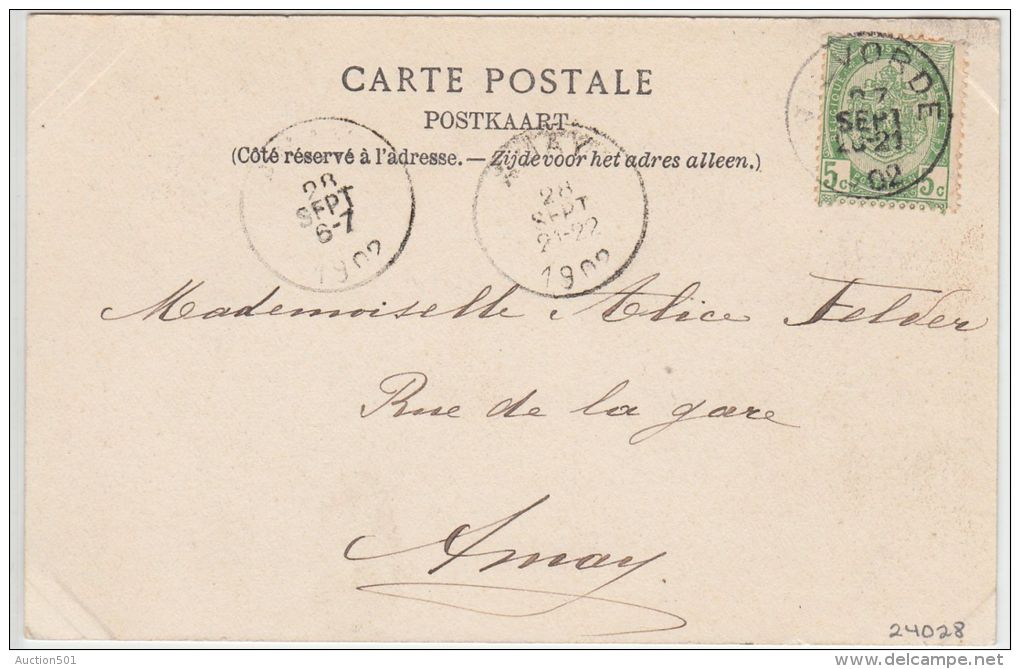 CARTE POSTALE
POSTKAART
(Côté réservé à l'adresse. — Zijde voor het adres alleen.)
VILVORDE
27
SEPT
20-21
02
5c 5c
28
SEPT
6-7
1902
AMAY
28
SEPT
21-22
1902
Mademoiselle Alice Felder
Rue de la gare
Amay
24028
Auction501
delcampe.net